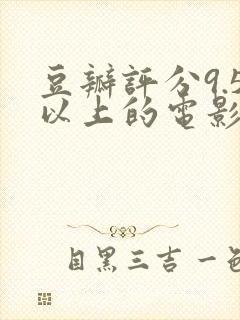 豆瓣評分9.5
以上的電影
目黑三吉一